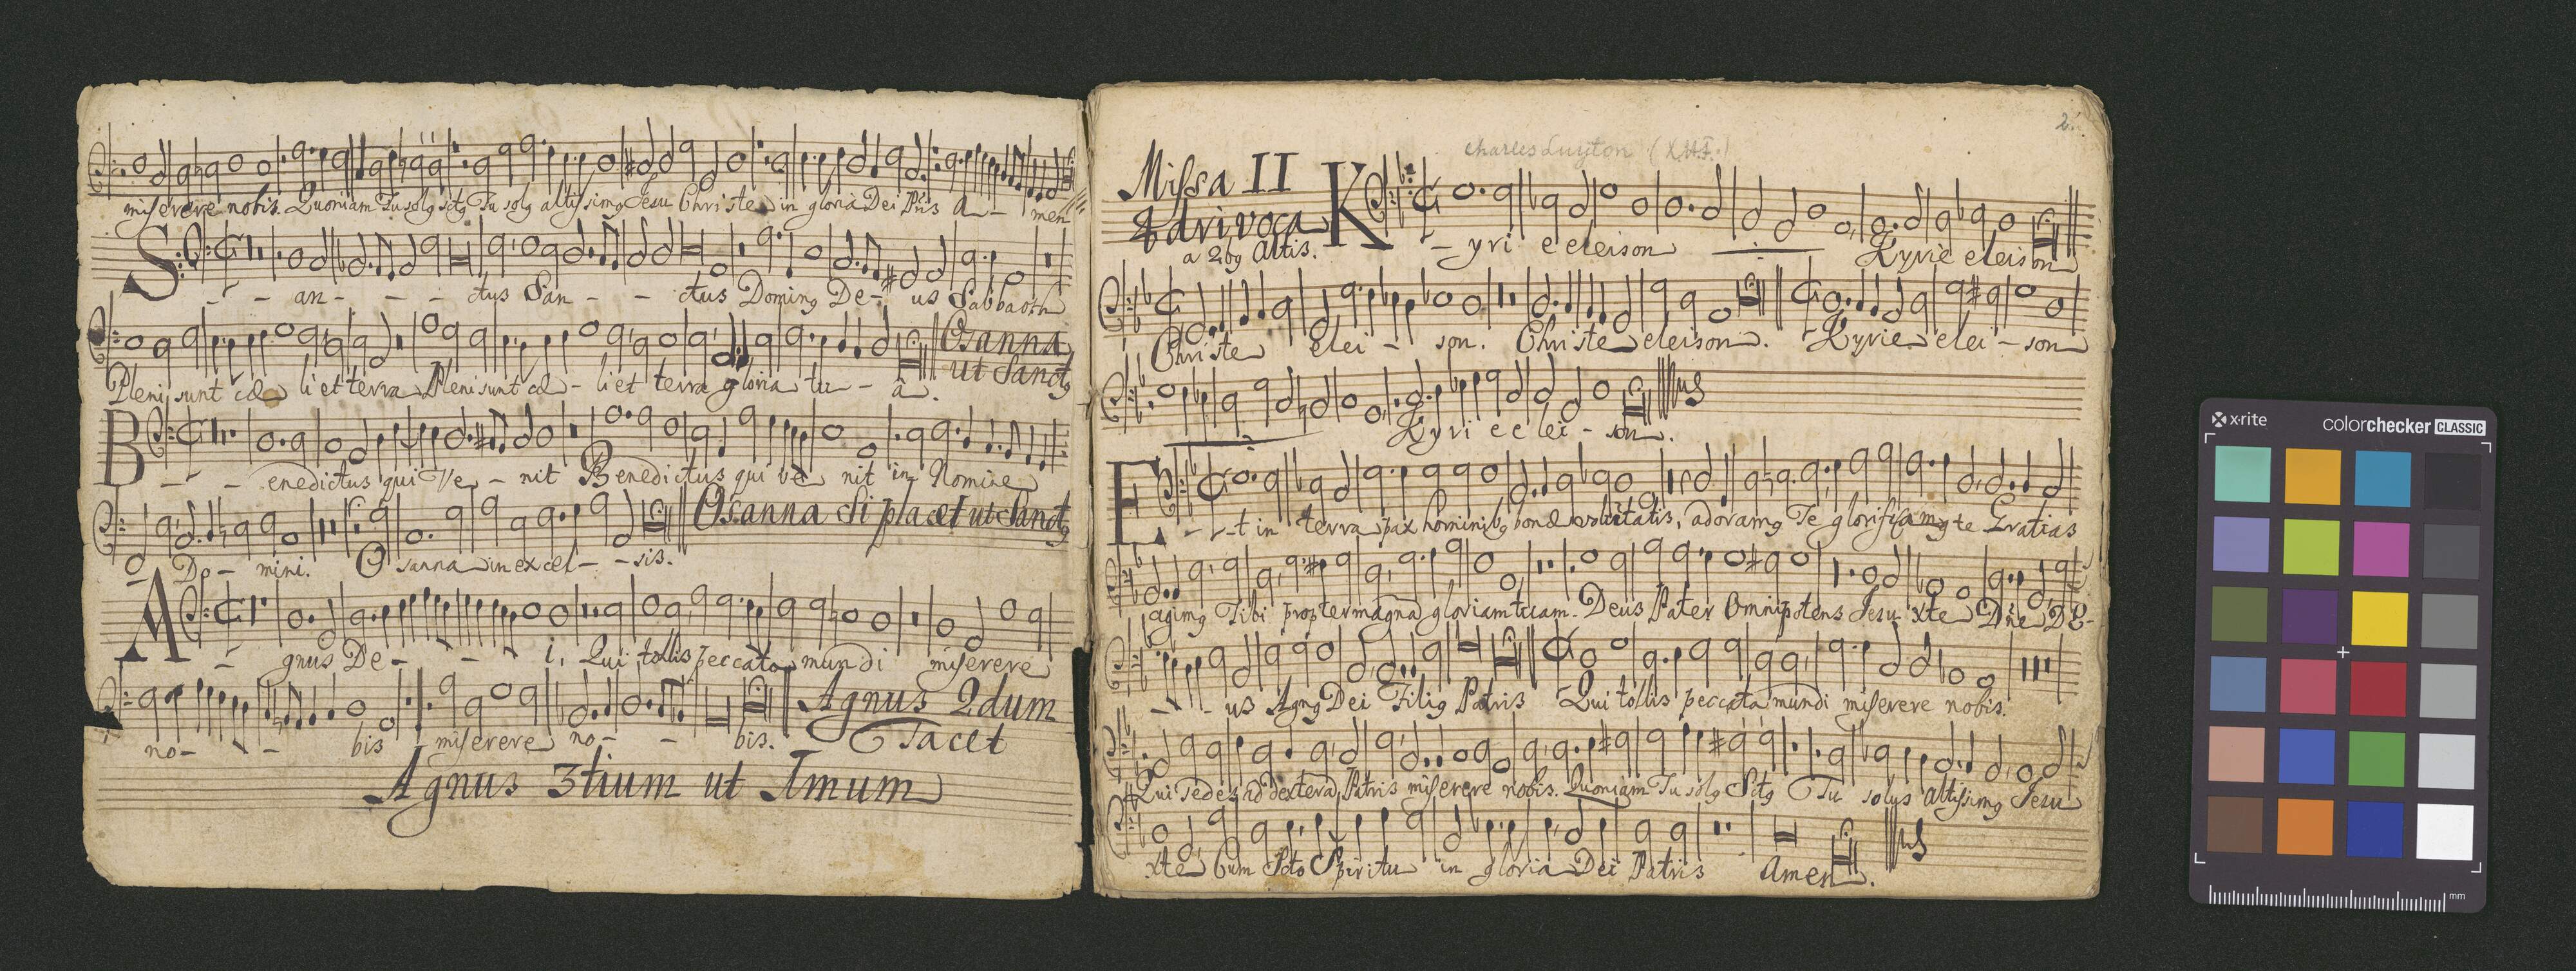 miserere nobis. Quoniam Tu solg sctg Tu solg altissimg Jesu Christe in gloria Dei Pris A - men
S - - an - - - ctus San - - ctus Doming De - us Sabbaoth
Pleni sunt cæ li et terra Pleni sunt cæ - li et terra gloria tu - â.
Osanna
ut Sanctg
B - - enedictus qui Ve - nit Benedictus qui ve nit in Nomine
Do - mini. O sanna in excel - - sis.
Osanna si placet ut Sanctg
A - gnus De - - - i, Qui tollis peccata mundi miserere
no - - - bis miserere no - - bis.
Agnus 2dum
Tacet
Agnus 3tium ut Imum
2.
Charles Luyton
Missa II
Qdrivoca
a 2bg Altis.
K - yri e eleison Kyrie eleison
Christe elei - son. Christe eleison. Kyrie elei - son
Kyri e e lei - son.
E - t in terra pax hominibg bonæ voluntatis, adoramg Te glorificamg te Gratias
agimg Tibi propter magna gloriam tuam. Deus Pater Omnipotens Jesu xte Dne De -
- - us Agng Dei Filig Patris Qui tollis peccata mundi miserere nobis.
Qui sedes ad dextera Patris miserere nobis. Quoniam Tu solg Sctg Tu solus altissimg Jesu
xte Cum Scto Spiritu in gloria Dei Patris Amen.
x-rite colorchecker CLASSIC
mm